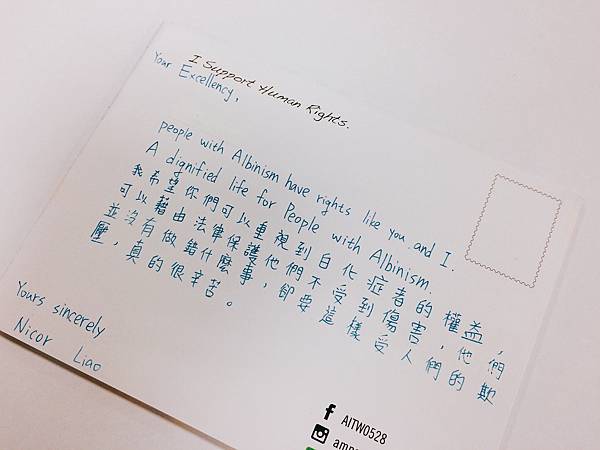 I Support Human Rights.
Your Excellency,
people with Albinism have rights like you and I.
A dignified life for People with Albinism.
我希望你們可以重視到白化症者的權益,
可以藉由法律保護他們不受到傷害,他們
並沒有做錯什麼事,卻要這樣受人們的欺
壓,真的很辛苦。
Yours sincerely
Nicor Liao
AITW0528